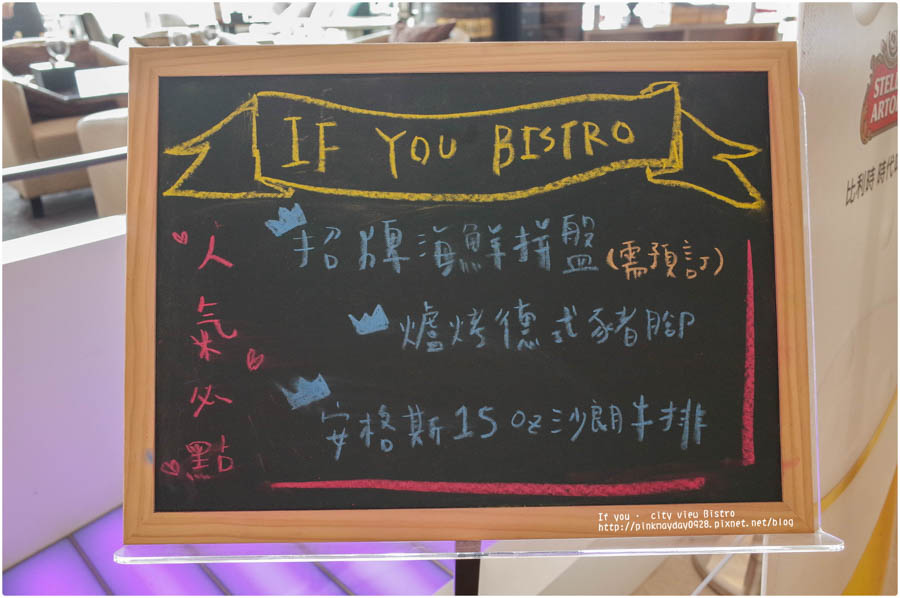 IF YOU BISTRO
人氣必點
招牌海鮮拼盤(需預訂)
爐烤德式豬腳
安格斯15oz沙朗牛排
STELLA
ARTOIS
比利時 時代
If you · city view Bistro
http://pinkmayday0928.pixnet.net/blog